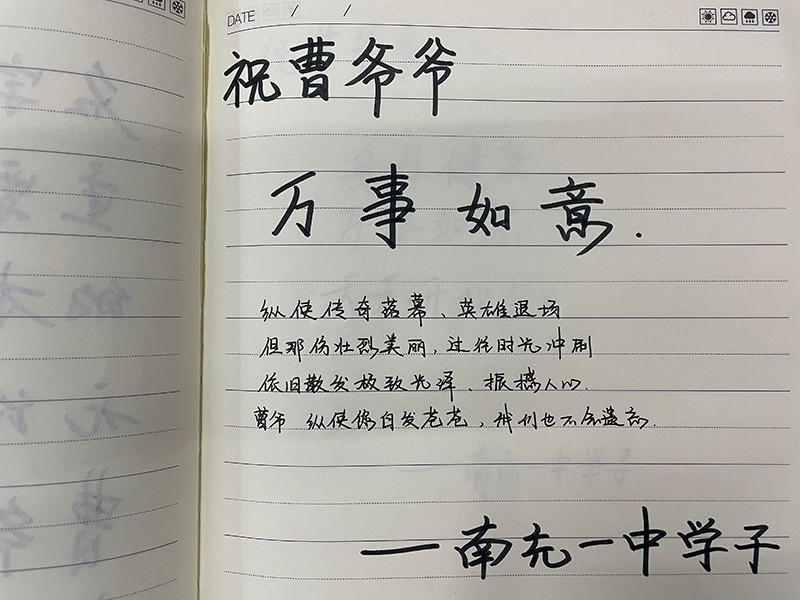 DATE / /
祝曹爷爷
万事如意.
纵使传奇落幕、英雄退场
但那份壮烈美丽，过往时光冲刷
依旧散发极致光泽、振撼人心.
曹爷 纵使您白发苍苍，我们也不会遗忘.
——南充一中学子